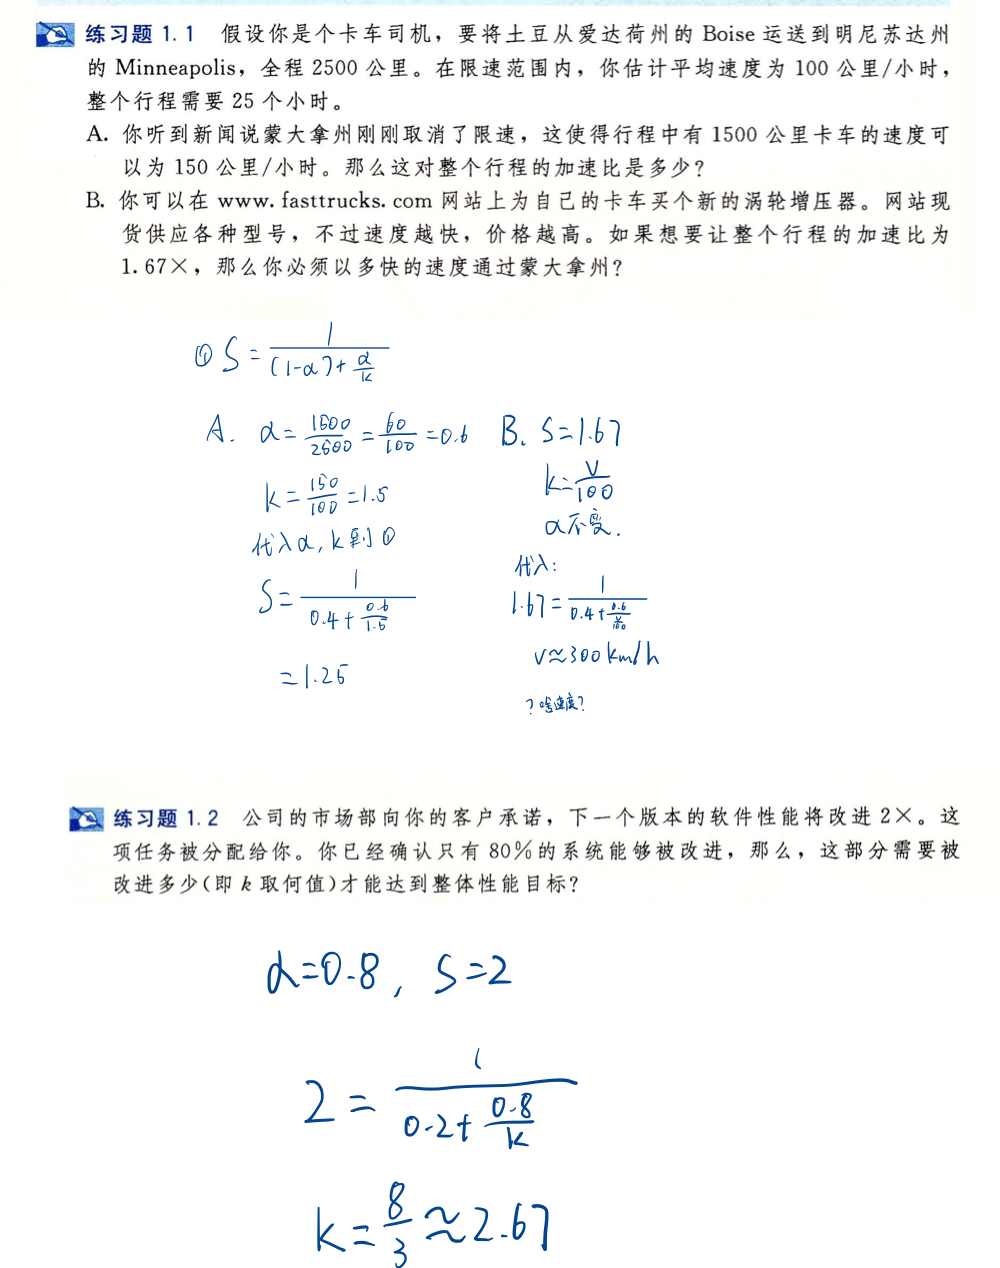 练习题 1.1 假设你是个卡车司机，要将土豆从爱达荷州的 Boise 运送到明尼苏达州
的 Minneapolis，全程 2500 公里。在限速范围内，你估计平均速度为 100 公里/小时，
整个行程需要 25 个小时。
A. 你听到新闻说蒙大拿州刚刚取消了限速，这使得行程中有 1500 公里卡车的速度可
以为 150 公里/小时。那么这对整个行程的加速比是多少？
B. 你可以在 www.fasttrucks.com 网站上为自己的卡车买个新的涡轮增压器。网站现
货供应各种型号，不过速度越快，价格越高。如果想要让整个行程的加速比为
1.67×，那么你必须以多快的速度通过蒙大拿州？
① S = 1/((1-α)+α/k)
A. α = 1500/2500 = 60/100 = 0.6
k = 150/100 = 1.5
代入α, k 到 ①
S = 1/(0.4+0.6/1.5)
= 1.25
B. S = 1.67
k = V/100
α不变.
代入:
1.67 = 1/(0.4+0.6/(v/100))
v≈300 km/h
? 啥速度?
练习题 1.2 公司的市场部向你的客户承诺，下一个版本的软件性能将改进 2×。这
项任务被分配给你。你已经确认只有 80%的系统能够被改进，那么，这部分需要被
改进多少(即 k 取何值)才能达到整体性能目标？
α=0.8, S=2
2 = 1/(0.2+0.8/k)
k = 8/3 ≈ 2.67